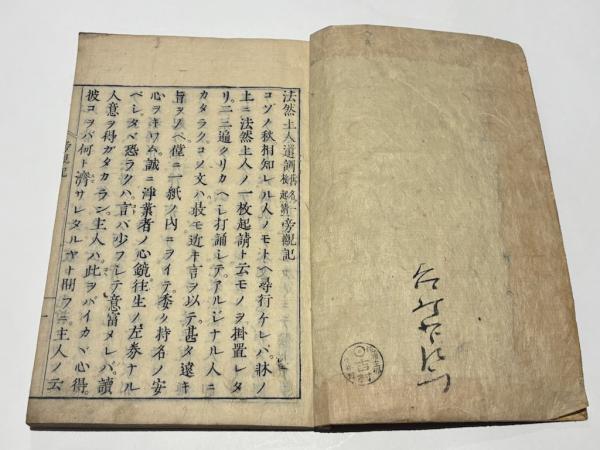 法然上人遺訓俗名一枚起請旁觀記
コゾノ秋相知レル人ノモトヘ尋行ケレバ。牀ノ
上ニ法然上人ノ一枚起請ト云モノヲ掛置レタ
リ。二三遍クリカヘシ打誦シテ。アルジナル人ニ
カタラクコノ文ハ。最モ近キ言ヲ以テ。甚タ遠キ
旨ヲノベ。僅ニ一紙ノ內ニヲイテ。委ク持名ノ安
心ヲキワム。誠ニ淨業者ノ心鏡往生ノ左券ナル
ベシ。タヾ恐ラクハ。言バ少フシテ意富メレバ。讀
人意ヲ得ガタカラン。主人ハ此ヲバイカヾ心得。
彼コヲバ何ト濟サレタルヤト問フニ。主人ノ云